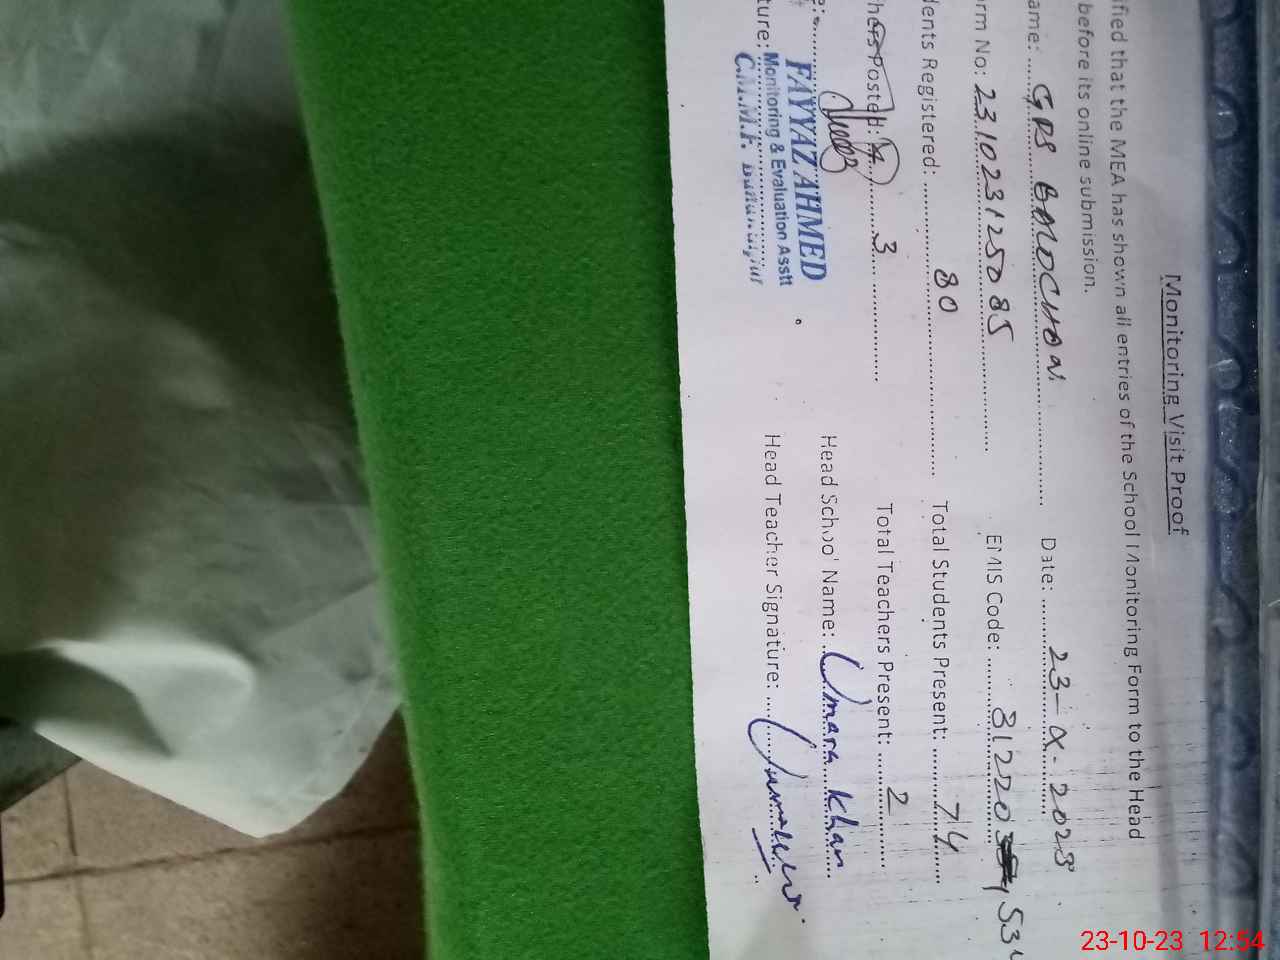 Monitoring Visit Proof
ified that the MEA has shown all entries of the School Monitoring Form to the Head
before its online submission.
ame: GPS BALOCHAN Date: 23-X-2023
rm No: 231023125085 EMIS Code: 31220 534
dents Registered: 80 Total Students Present: 74
hers Posted: 3 Total Teachers Present: 2
e: Head School Name: Umara Khan
FAYYAZ AHMED
ture: Head Teacher Signature:
Monitoring & Evaluation Asstt
C.M.M.F.
23-10-23 12:54